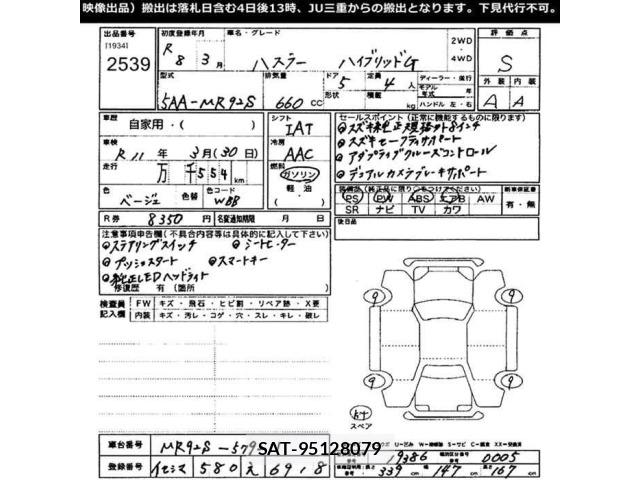 映像出品）搬出は落札日含む4日後13時、JU三重からの搬出となります。下見代行不可。
出品番号 初度登録年月 車名・グレード 2WD・4WD 評価点
[1934] 2539 R 8 3月 ハスラー ハイブリッドG S
型式 排気量 ドア 定員 ディーラー・並行 外装 内装
5AA-MR92S 660 CC 5 4人 モデル年式 年
形状 積載 kg ハンドル 左・右 A A
車歴 自家用・( ) シフト IAT セールスポイント (正常に機能するものに限ります)
車検 R 11年 3月(30)日 冷房 AAC スズキセーフティサポート
走行 万 千554 km 燃料 ガソリン アダプティブクルーズコントロール
色 ベージュ 色替 色コード WBB 軽油・( ) デュアルカメラブレーキサポート
PS PW ABS エアB AW 新車保証書
SR ナビ TV カワ 有・無
R券 8350円 名変通知期限 月 日 後日品
注意事項申告欄 (不具合内容等は具体的に記入して下さい)
ステアリングスイッチ シートヒーター
プッシュスタート スマートキー
純正LEDヘッドライト
修復歴 有 (箇所 )
検査員記入欄 FW キズ・飛石・ヒビ割・リペア跡・X要
内装 キズ・汚レ・コゲ・穴・スレ・キレ・破レ
9 9
9 9
スペア
車台番号 MR92S-579
SAT-95128079
19386 類別区分番号 0005
登録番号 イセシマ 580 え 6918 長さ 339 幅 147 高さ 167 cm